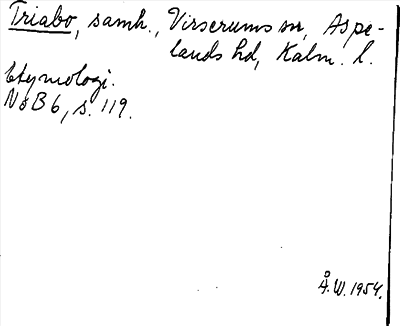 Triabo, samh., Virserums sn, Aspe-
lands hd, Kalm. l.
Etymologi.
NoB 6, s. 119.
Å.W. 1954.